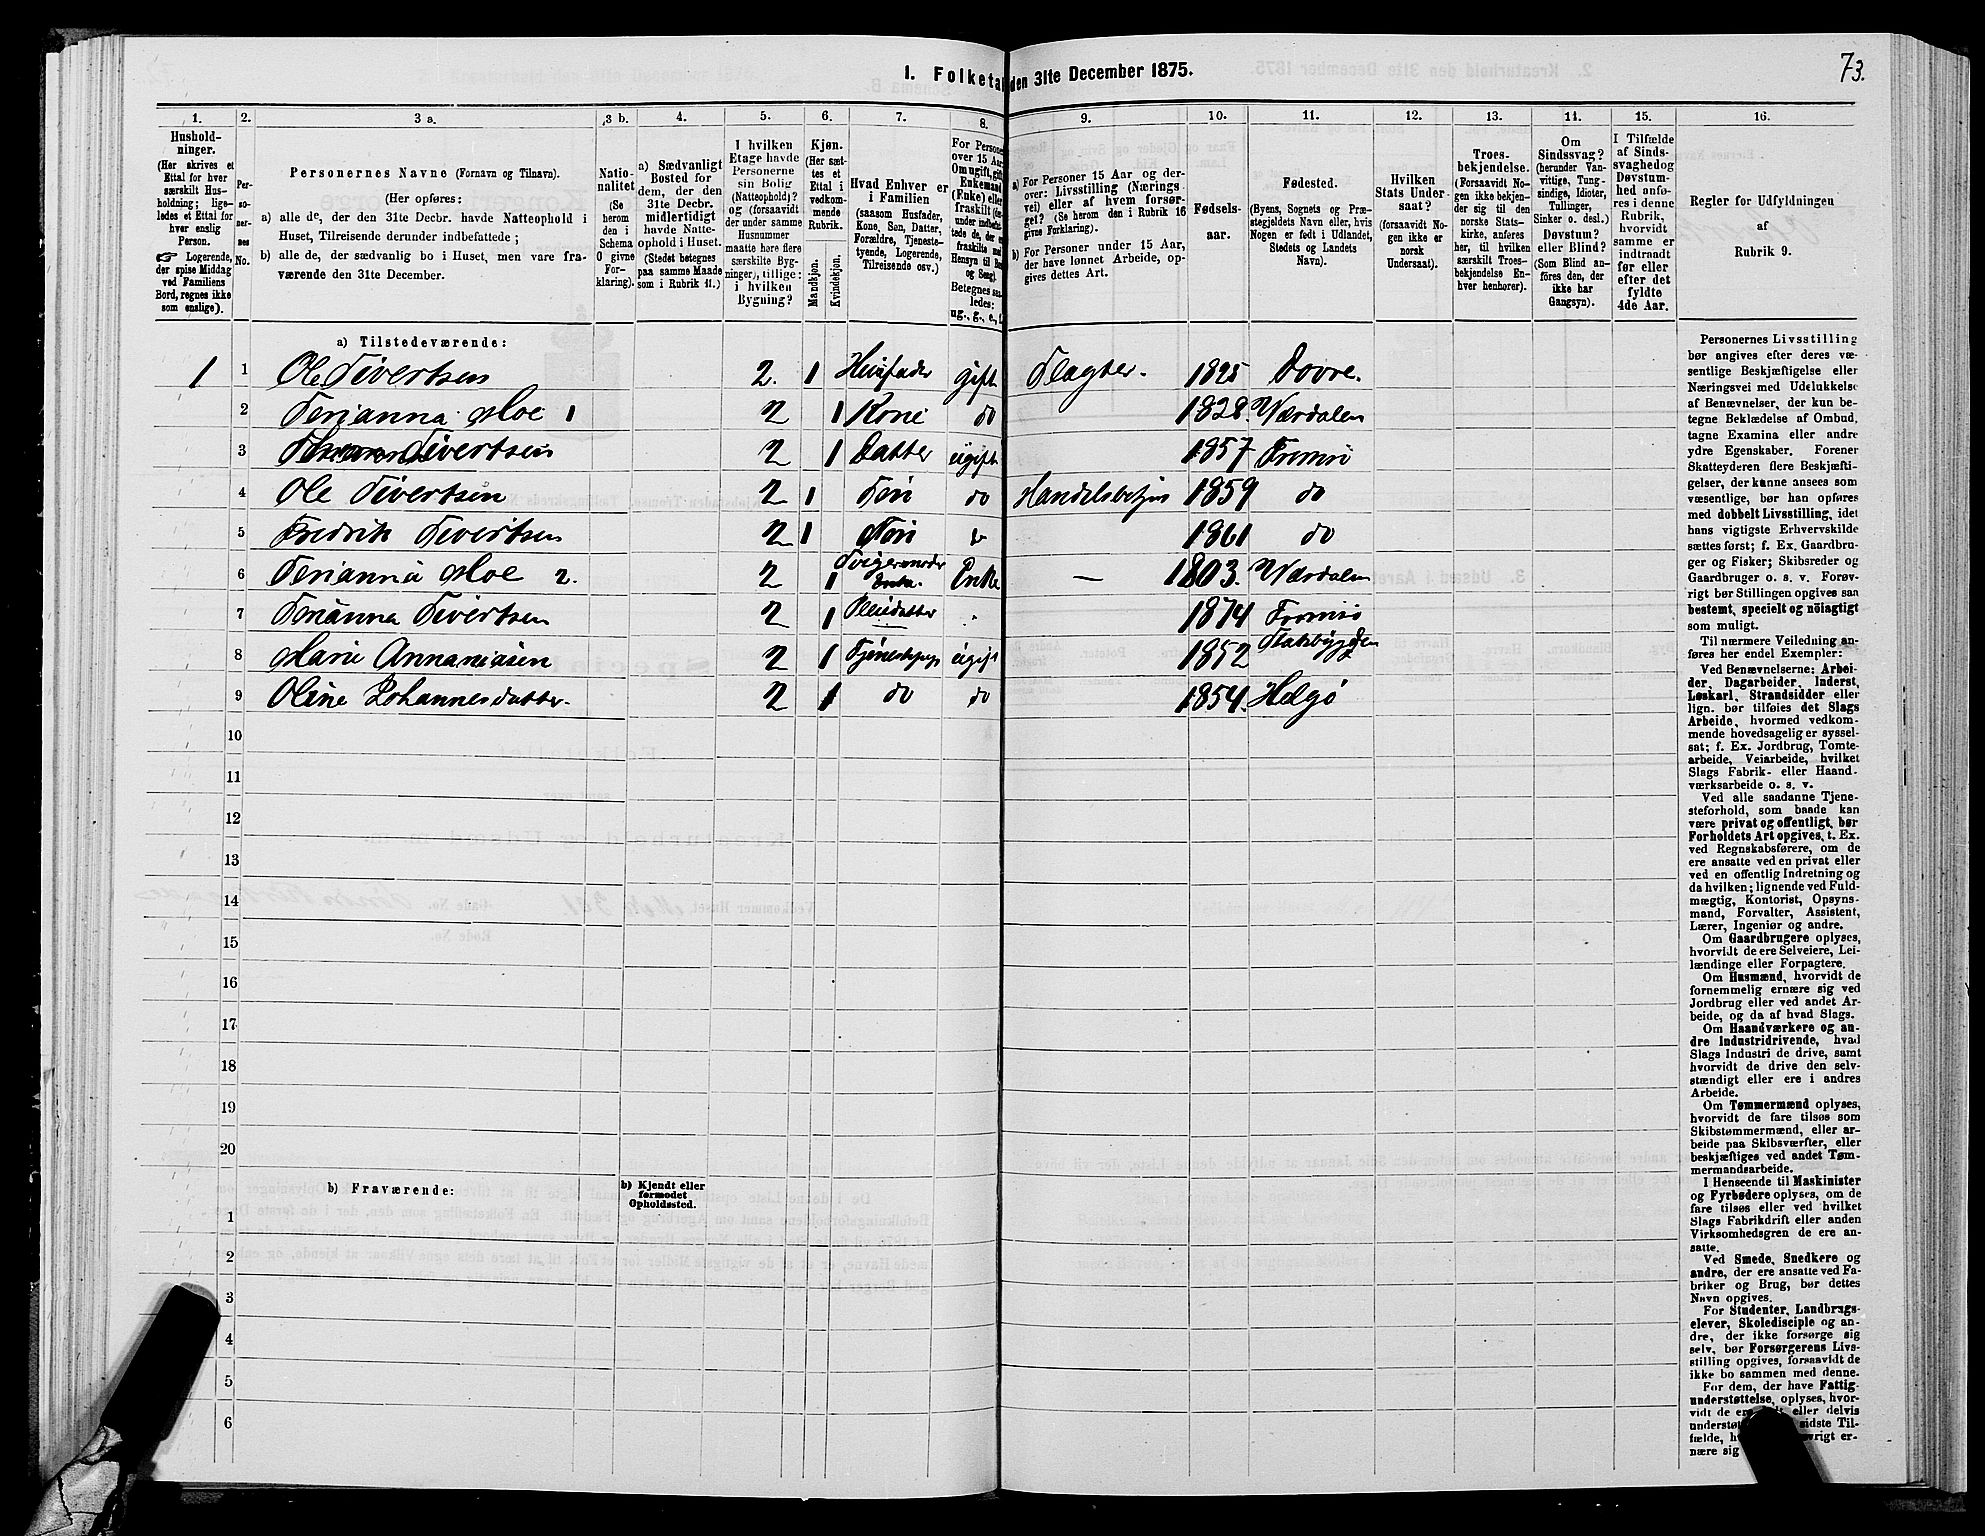 73.
1. Folketal den 31te December 1875.
1. 2. 3 a. 3 b. 4. 5. 6. 7. 8. 9. 10. 11. 12. 13. 14. 15. 16.
Hushold-
ninger.
(Her skrives et
Ettal for hver
særskilt Hus-
holdning; lige-
ledes et Ettal for
hver enslig
Person.
☞ Logerende,
der spise Middag
ved Familiens
Bord, regnes ikke
som enslige).
Per-
so-
ner-
nes
No.
Personernes Navne (Fornavn og Tilnavn).
(Her opføres:
a) alle de, der den 31te Decbr. havde Natteophold i
Huset, Tilreisende derunder indbefattede;
b) alle de, der sædvanlig bo i Huset, men vare fra-
værende den 31te December.
Natio-
nalitet
(Se
herom
den i
Schema
O givne
For-
klaring).
a) Sædvanligt
Bosted for
dem, der den
31te Decbr.
midlertidigt
havde Natte-
ophold i Huset.
(Stedet betegnes
paa samme Maade
som i Rubrik 11.)
I hvilken
Etage havde
Personerne
sin Bolig
(Natteophold)?
og (forsaavidt
der under samme
Husnummer
maatte høre flere
særskilte Byg-
ninger), tillige:
i hvilken
Bygning?
Kjøn.
(Her sæt-
tes et
Ettal i
vedkom-
mende
Rubrik.
Mandkjøn.
Kvindekjøn.
Hvad Enhver er
i Familien
(saasom Husfader,
Kone, Søn, Datter,
Forældre, Tjeneste-
tyende, Logerende,
Tilreisende osv.)
For Persone
over 15 Aar
Om ugift, gift
Enkemand
(Enke) eller
fraskilt
Betegnes saa-
ledes:
ug., g., e., f.
a) For Personer 15 Aar og der-
over: Livsstilling (Nærings-
vei) eller af hvem forsør-
get? (Se herom den i Rubrik 16
givne Forklaring).
b) For Personer under 15 Aar,
der have lønnet Arbeide, op-
gives dettes Art.
Fødsels-
aar.
Fødested.
(Byens, Sognets og Præ-
stegjeldets Navn eller, hvis
Nogen er født i Udlandet,
Stedets og Landets
Navn).
Hvilken
Stats Under-
saat?
(forsaavidt No-
gen ikke er
norsk
Undersaat).
Troes-
bekjendelse.
(Forsaavidt No-
gen ikke bekjen-
der sig til den
norske Stats-
kirke, anføres
her, til hvilken
særskilt Troes-
bekjendelse En-
hver henhører).
Om
Sindssvag?
(herunder Van-
vittige, Tung-
sindige, Idioter,
Tullinger,
Sinker o. desl.)
Døvstum?
eller Blind?
(Som Blind an-
føres den, der
ikke har
Gangsyn).
I Tilfælde
af Sinds-
svaghed og
Døvstum-
hed anfø-
res i denne
Rubrik,
hvorvidt
samme er
indtraadt
før eller
efter det
fyldte
4de Aar.
Regler for Udfyldningen
af
Rubrik 9.
a) Tilstedeværende:
1 1 Ole Sivertsen 2. 1 Husfader gift Slagter. 1825 Dovre.
2 Serianna Moe 1 2 1 Kone do 1828. Værdalen
3 Sivertsen 2 1 Datter ugift 1857 Tromsø
4 Ole Sivertsen 2 1 Søn do Handelsbetjen 1859 do
5 Fredrik Sivertsen 2 1 Søn 1861 do
6 Serianna Moe 2. 2 1 Svigermoder Enke — 1803. Værdalen
7 Serianna Sivertsen 2 1 Pleiedatter 1874 Tromsø
8 Marie Annaniasen 2 1 Tjenestepige ugift 1852 Stadsbygden
9 Oline Johannesdatter. 2 1 do do 1854. Helgø
10
11
12
13
14
15
16
17
18
19
20
b) Fraværende:
b) Kjendt eller
formodet
Opholdssted.
1
2
3
4
5
6
Personernes Livsstilling
bør angives efter deres væ-
sentlige Beskjæftigelse eller
Næringsvei med Udelukkelse
af Benævnelser, der kun be-
tegne Beklædelse af Ombud,
tagne Examina eller andre
ydre Egenskaber. Forener
Skatteyderen flere Beskjæfti-
gelser, der kunne ansees som
væsentlige, bør han opføres
med dobbelt Livsstilling, idet
hans vigtigste Erhvervskilde
sættes først; f. Ex. Gaardbru-
ger og Fisker; Skibsreder og
Gaardbruger o. s. v. Forøv-
rigt bør Stillingen opgives saa
bestemt, specielt og nöiagtigt
som muligt.
Til nærmere Veiledning an-
føres her endel Exempler:
Ved Benævnelserne: Arbei-
der, Dagarbeider, Inderst,
Løskarl, Strandsidder eller
lign. bør tilføies det Slags
Arbeide, hvormed vedkom-
mende hovedsagelig er syssel-
sat; f. Ex. Jordbrug, Tomte-
arbeide, Veiarbeide, hvilket
Slags Fabrik- eller Haand-
værksarbeide o. s. v.
Ved alle saadanne Tjene-
steforhold, som baade kan
være privat og offentligt, bør
Forholdets Art opgives, t. Ex.
ved Regnskabsførere, om de
ere ansatte ved en privat eller
ved en offentlig Indretning og
da hvilken; lignende ved Fuld-
mægtig, Kontorist, Opsyns-
mand, Forvalter, Assistent,
Lærer, Ingeniør og andre.
Om Gaardbrugere oplyses,
hvorvidt de ere Selveiere, Lei-
lændinge eller Forpagtere.
Om Husmænd, hvorvidt de
fornemmelig ernære sig ved
Jordbrug eller ved andet Ar-
beide, og da af hvad Slags.
Om Haandværkere og an-
dre Industridrivende, hvad
Slags Industri de drive, samt
hvorvidt de drive den selv-
stændigt eller ere i andres
Arbeide.
Om Tømmermænd oplyses,
hvorvidt de fare tilsøs som
Skibstømmermænd, eller ar-
beide paa Skibsværfter, eller
beskjæftiges ved andet Tøm-
mermandsarbeide.
I Henseende til Maskinister
og Fyrbødere oplyses, om de
fare tilsøs eller ved hvilket
Slags Fabrikdrift eller anden
Virksomhedsgren de ere an-
satte.
Ved Smede, Snedkere og
andre, der ere ansatte ved Fa-
briker og Brug, bør dettes
Navn opgives.
For Studenter, Landbrugs-
elever, Skoledisciple og an-
dre, der ikke forsørge sig
selv, bør Forsørgerens Livs-
stilling opgives, forsaavidt de
ikke bo sammen med denne.
For dem, der have Fattig-
understøttelse, oplyses, hvor-
vidt de ere eller delvis
sidste Til-
fælde, ernære
sig